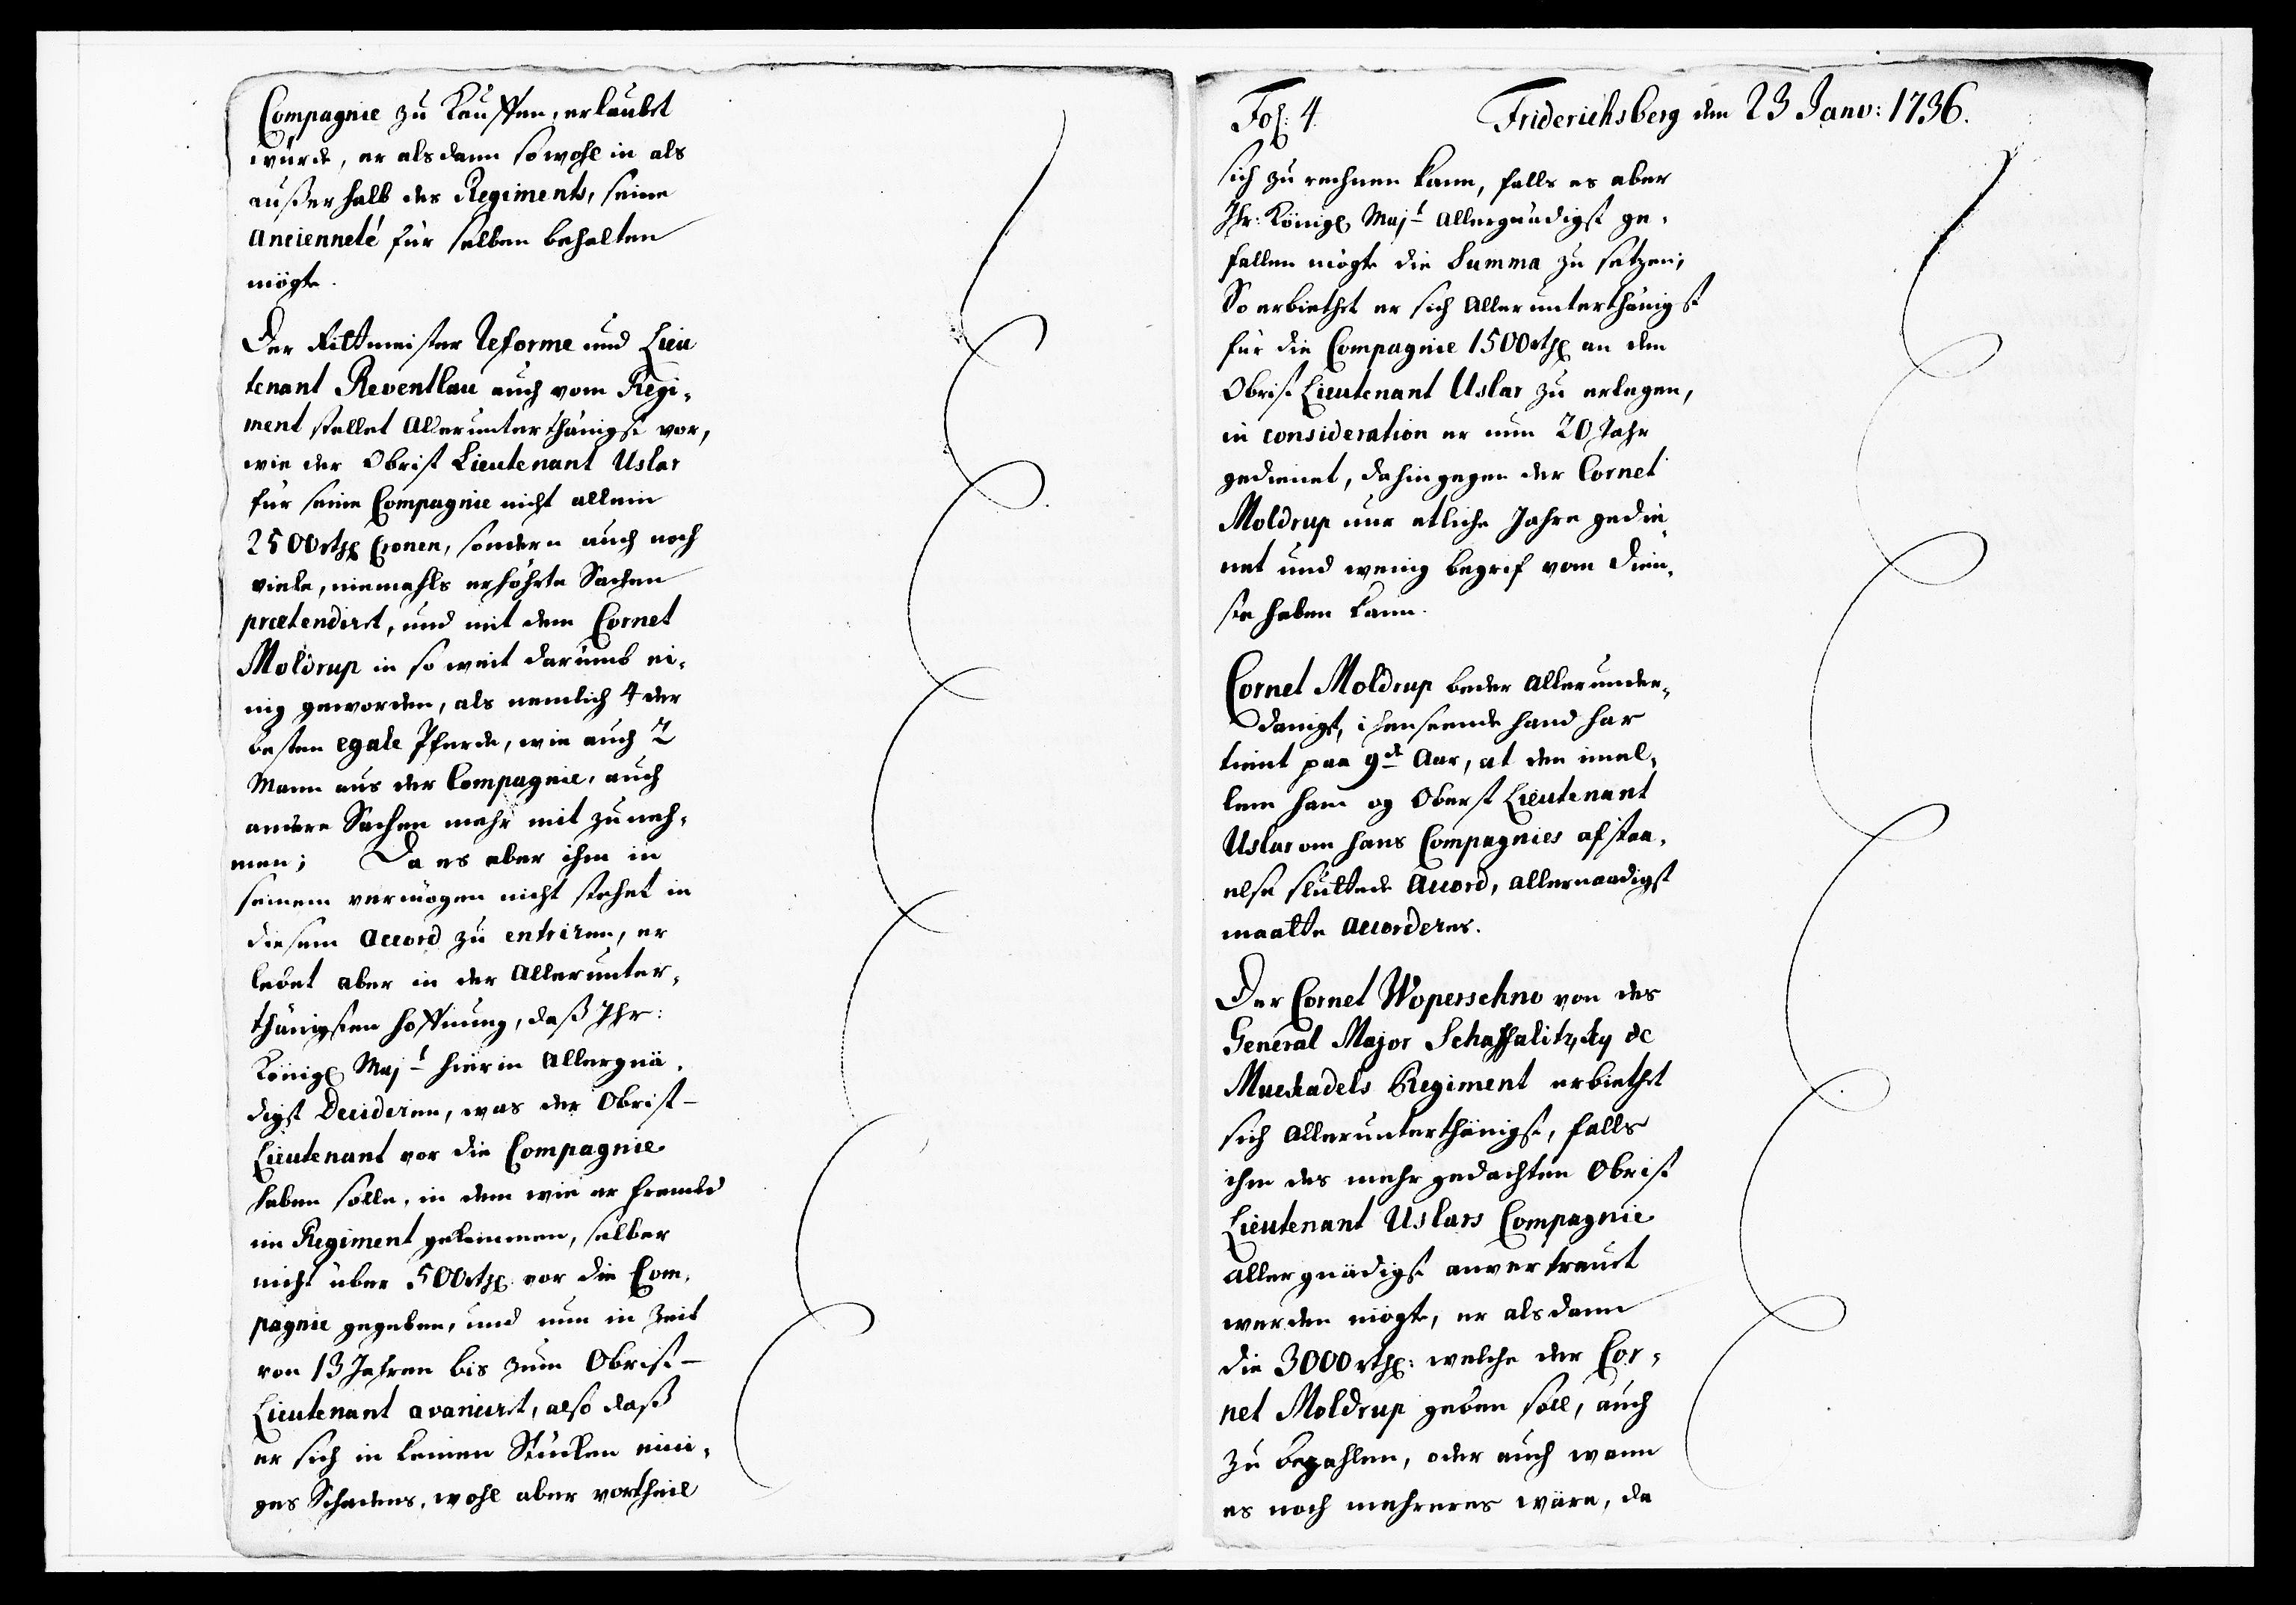 Compagnie zu Kauffen, erlaubet
würde, er alsdann sowohl in als
außerhalb des Regiments, seine
Ancienneté für selben behalten
mögte.
Der Rittmeister Reforme und Lieu
tenant Reventlau auch vom Regi-
ment stellet Allerunterthänigst vor,
wie der Obrist Lieutenant Uslar
für seine Compagnie nicht allein
2500 rthl Cronen, sondern auch noch
viele, niemahls erhöhrte Sachen
prætendiret, und mit dem Cornet
Moldrup in so weit darumb ei-
nig geworden, als nemlich 4 der
besten egale Pferde, wie auch 2
Mann aus der Compagnie, auch
andere Sachen mehr mit zu neh-
men; Da es aber ihm in
seinem vermögen nicht stehet in
diesem Accord zu entriren, er
lebet aber in der Allerunter-
thänigsten hoffnung, daß Ihr:
Königl Majt hierin Allergnä-
digst Decideren, was der Obrist-
Lieutenant vor die Compagnie
haben solle, in dem wie er frembd
im Regiment gekommen, selber
nicht über 500 rthl vor die Com-
pagnie gegeben, und nun in Zeit
von 13 Jahren bis zum Obrist-
Lieutenant avanciret, also daß
er sich in keinen Stücken eini-
ges Schadens, wohl aber vortheil
Fol: 4. Friderichsberg den 23 Janv: 1736.
sich zu rechnen kann, falls es aber
Ihr: Königl Majt Allergnädigst ge-
fallen mögte die Summa zu setzen;
So erbiethet er sich Allerunterthänigst
für die Compagnie 1500 rthl an den
Obrist Lieutenant Uslar zu erlegen,
in consideration er nun 20 Jahr
gedienet, dahingegen der Cornet
Moldrup nur etliche Jahre gedie-
net und wenig begrif vom Dien-
ste haben kann.
Cornet Moldrup beder allerunder-
danigst, i henseende hand har
tient paa 9de Aar, at den imel-
lem ham og Oberst Lieutenant
Uslar om hans Compagnies afstaa-
else sluttede Accord, allernaadigst
maatte Accorderes.
Der Cornet Woperschno von des
General Major Schaffalitzky de
Muckadels Regiment erbiethet
sich Allerunterthänigst, falls
ihm des mehr gedachten Obrist
Lieutenant Uslars Compagnie
Allergnädigst anvertrauet
werden mögte, er alsdann
die 3000 rthl: welche der Cor-
net Moldrup geben soll, auch
zu bezahlen, oder auch wann
es noch mehreres wäre, da